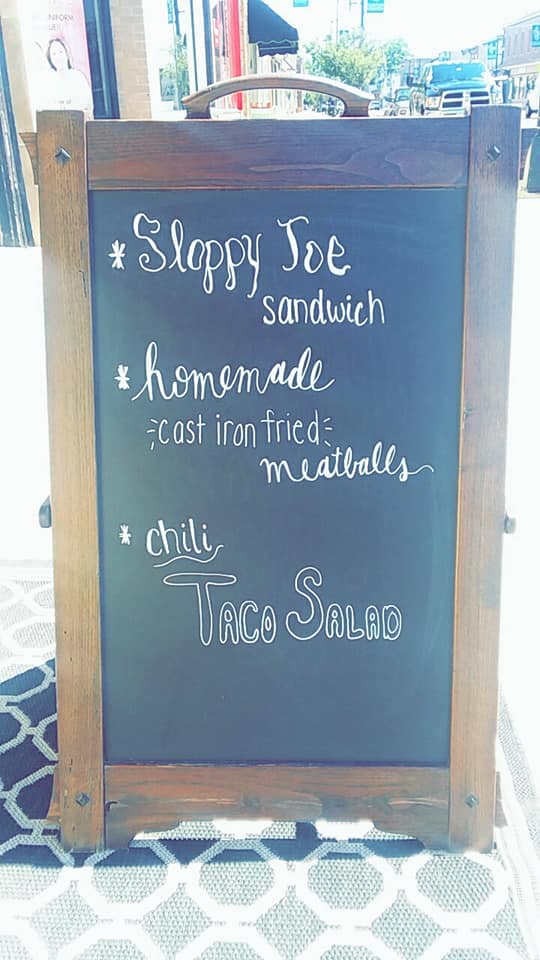 * Sloppy Joe
sandwich
* homemade
cast iron fried
meatballs
* chili
TACO SALAD